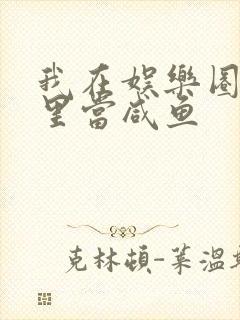 我在娱樂圈
里當咸鱼
克林頓-莱温